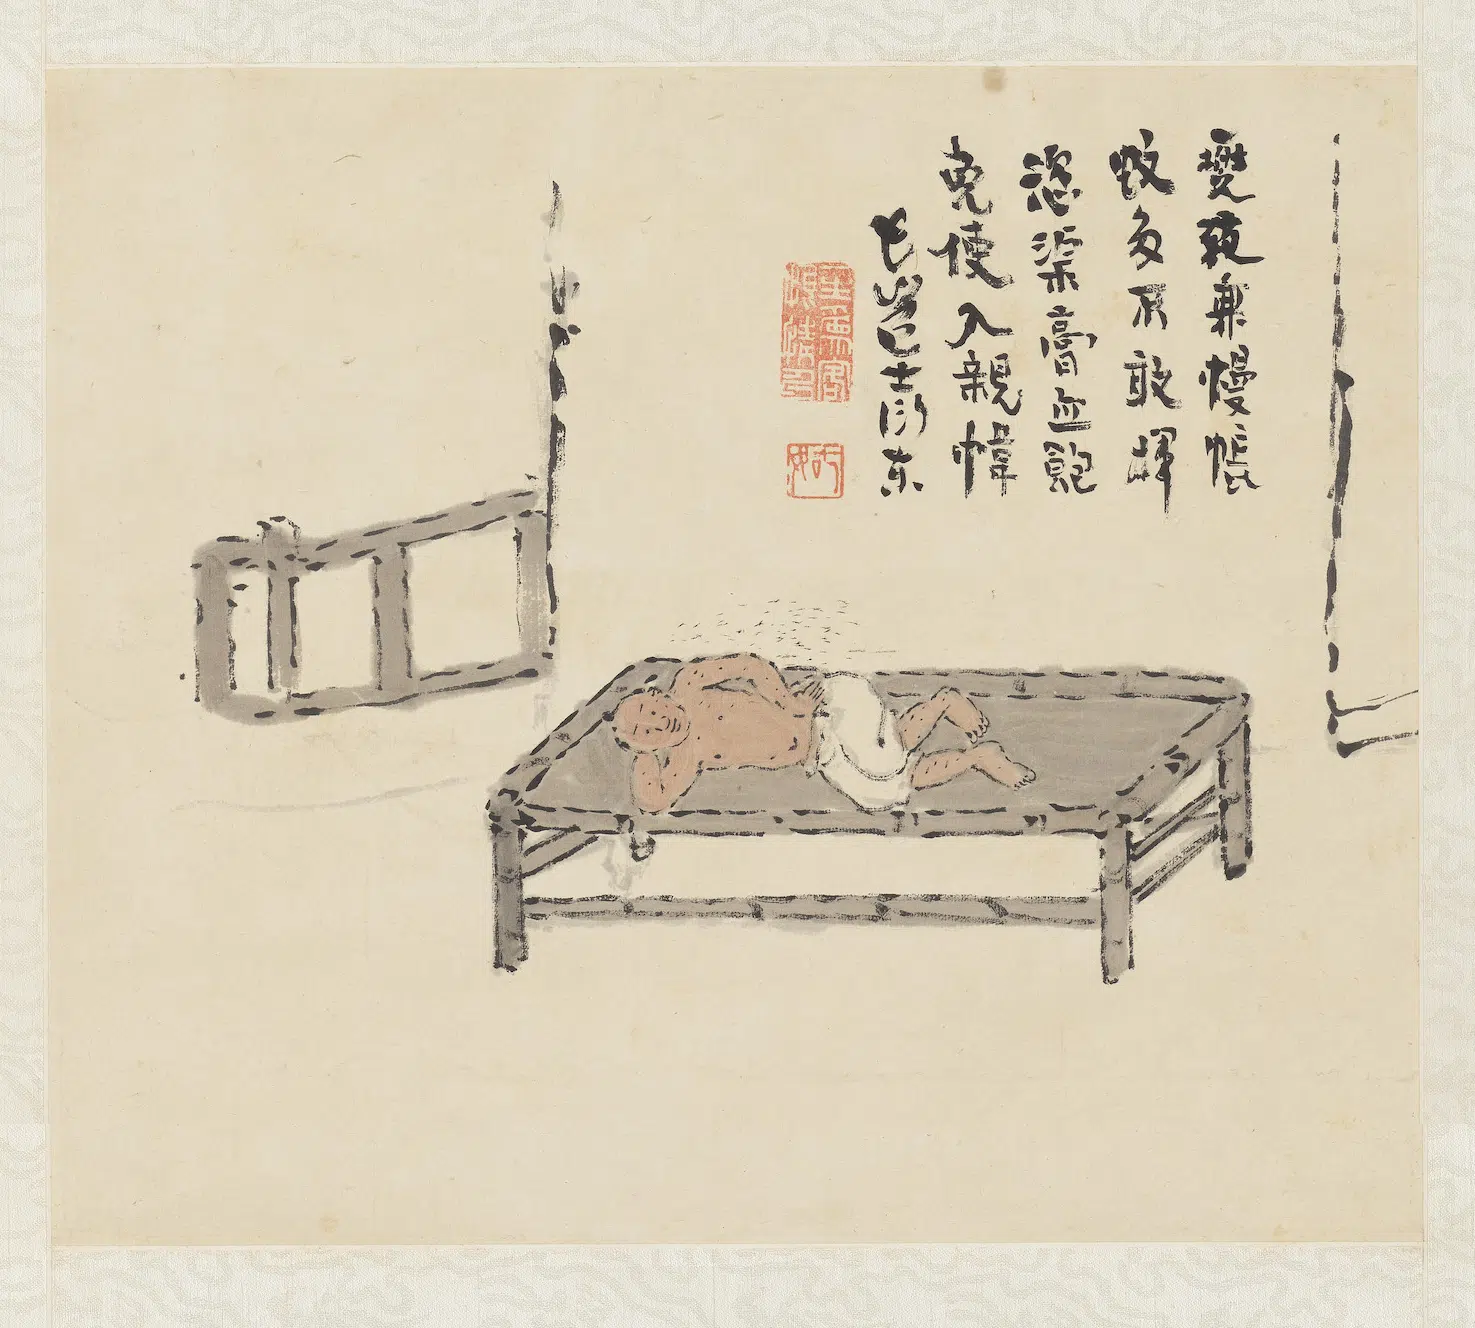 夏夜無幔帳
蚊多不敢揮
恣渠膏血飽
免使入親幃